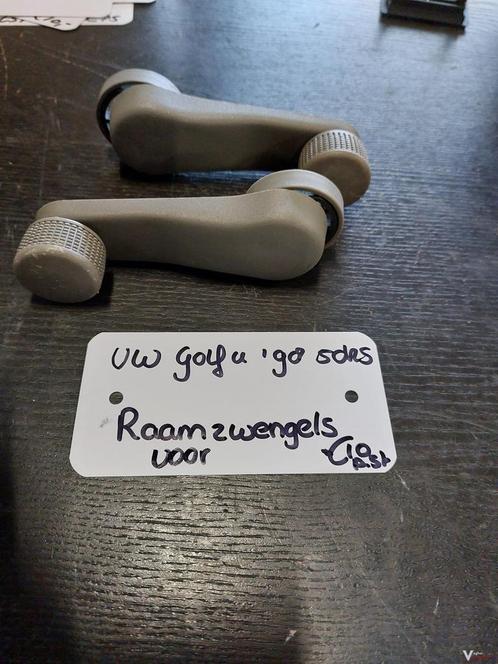 VW Golf 4 '98 5drs
Raamzwengels
voor
€10
p.st